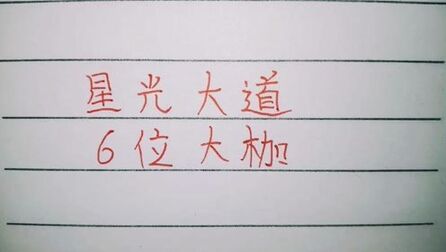 星光大道
6位大枷